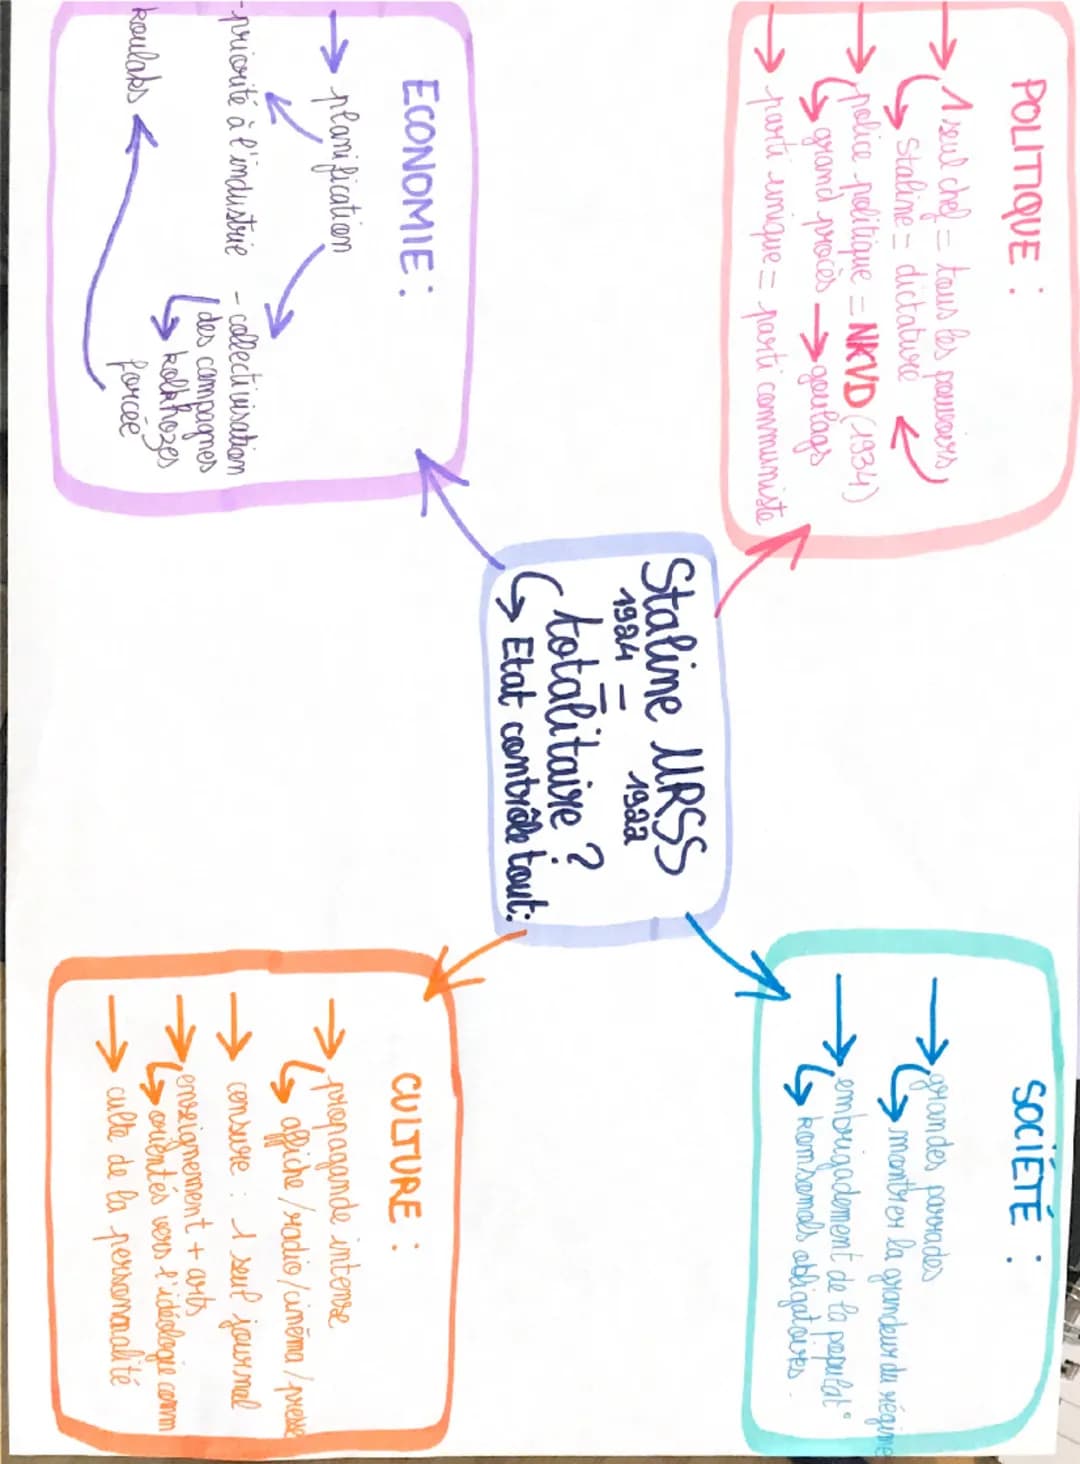 POLITIQUE :
→ 1 seul chef = tous les pouvoirs
↳ Staline = dictature
→ police politique = NKVD (1934)
↳ grand procès → goulags
→ parti unique = parti communiste
SOCIÉTÉ :
→ grandes parades
↳ montrer la grandeur du régime
→ embrigadement de la populat°
↳ komsomols obligatoires.
Staline URSS
1924 = 1922
totalitaire ?
↳ Etat contrôle tout:
ECONOMIE :
→ planification
- priorité à l'industrie
- collectivisation
des campagnes
↳ kolkhozes
forcée
koulaks
CULTURE :
→ propagande intense
↳ affiche/radio/cinéma/presse
→ censure : 1 seul journal
→ enseignement + arts
↳ orientés vers l'idéologie comm
→ culte de la personnalité